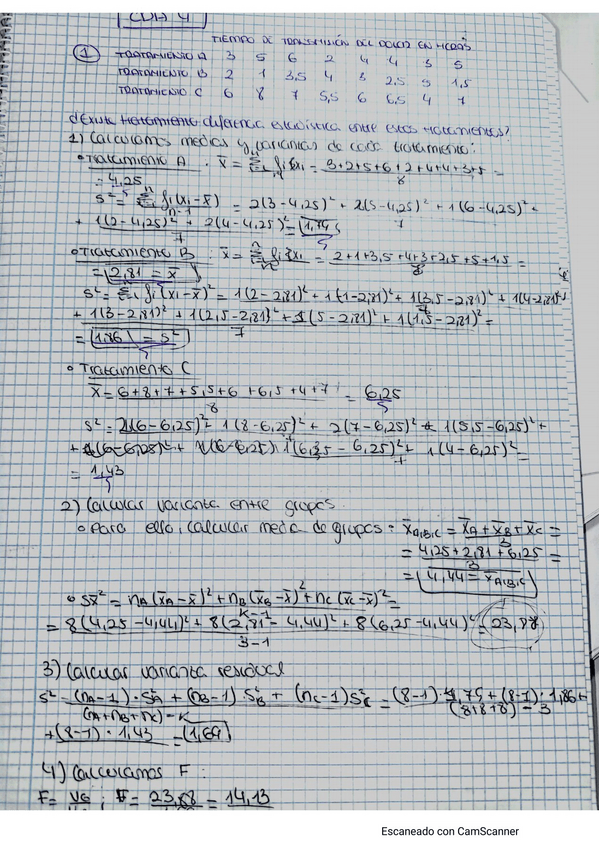 CDA 4
TIEMPO DE TRANSMISIÓN DEL DOLOR EN HORAS
1 TRATAMIENTO A 3 5 6 2 4 4 3 5
TRATAMIENTO B 2 1 3,5 4 3 2,5 5 1,5
TRATAMIENTO C 6 8 7 5,5 6 6,5 4 7
¿Existe tratamiento diferencia estadística entre estos tratamientos?
1) Calculamos medias y varianzas de cada tratamiento:
• Tratamiento A : x̄ = Σ fi xi = 3+2+5+6+2+4+4+3+5 / 8 =
= 4,25
s² = Σ fi (xi - x̄) / n-1 = 2(3-4,25)² + 2(5-4,25)² + 1(6-4,25)² +
+ 1(2-4,25)² + 2(4-4,25)² / 7 =
• Tratamiento B : x̄ = Σ fi xi = 2+1+3,5+4+3+2,5+5+1,5 / 8 =
= 2,81 = x̄
s² = Σ fi (xi - x̄)² = 1(2-2,81)² + 1(1-2,81)² + 1(3,5-2,81)² + 1(4-2,81)² +
+ 1(3-2,81)² + 1(2,5-2,81)² + 1(5-2,81)² + 1(1,5-2,81)² / 7 =
= 1,86 = s²
• Tratamiento C
x̄ = 6+8+7+5,5+6+6,5+4+7 / 8 = 6,25
s² = 2(6-6,25)² + 1(8-6,25)² + 2(7-6,25)² + 1(5,5-6,25)² +
+ 1(6,5-6,25)² + 1(4-6,25)² / 7 =
= 1,43
2) Calcular varianza entre grupos.
• Para ello, calcular media de grupos = x̄A,B,C = x̄A + x̄B + x̄C / 3 =
= 4,25 + 2,81 + 6,25 / 3 =
= 4,44 = x̄A,B,C
• Sx̄² = nA(x̄A - x̄)² + nB(x̄B - x̄)² + nC(x̄C - x̄)² / K-1 =
= 8(4,25-4,44)² + 8(2,81-4,44)² + 8(6,25-4,44)² / 3-1 =
3) Calcular varianza residual
s² = (nA-1)·SA² + (nB-1)·SB² + (nC-1)SC² / (nA+nB+nC)-K = (8-1)·1,75 + (8-1)·1,86 + / (8+8+8)-3
+ (8-1)·1,43 = 1,69
4) Calculamos F :
F = VG ; F = 23,88 = 14,13
Escaneado con CamScanner